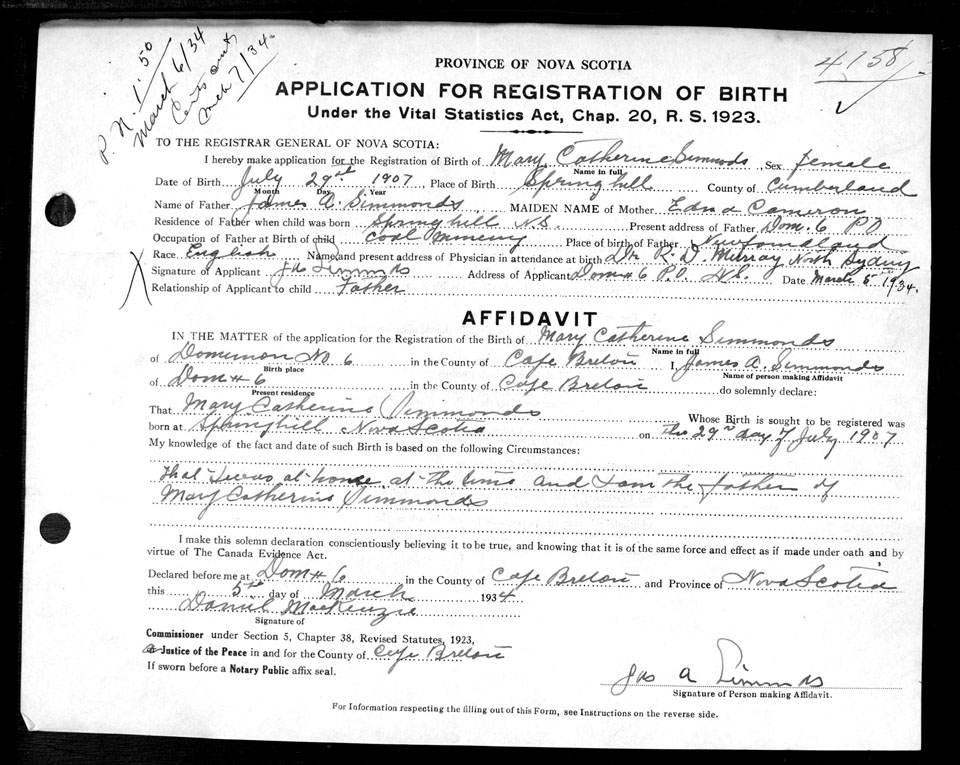 P. N. 1.50
March 6/34
Certs out
Mch 7/34.
4158
PROVINCE OF NOVA SCOTIA
APPLICATION FOR REGISTRATION OF BIRTH
Under the Vital Statistics Act, Chap. 20, R. S. 1923.
TO THE REGISTRAR GENERAL OF NOVA SCOTIA:
I hereby make application for the Registration of Birth of Mary Catherine Simmods, Sex female
Name in full
Date of Birth July 29th 1907, Place of Birth Springhill County of Cumberland
Month Day Year
Name of Father James A. Simmonds MAIDEN NAME of Mother Edna Cameron
Residence of Father when child was born Springhill N.S. Present address of Father Dom. 6 PO
Occupation of Father at Birth of child Coal Mining Place of birth of Father Newfoundland
Race English Name and present address of Physician in attendance at birth Dr R. D. Murray North Sydney
Signature of Applicant Jas Simmds Address of Applicant Dom # 6 P.O. N.S. Date March 5 1934.
Relationship of Applicant to child Father
AFFIDAVIT
IN THE MATTER of the application for the Registration of the Birth of Mary Catherine Simmonds
Name in full
of Dominion No 6 in the County of Cape Breton I, James A. Simmonds
Birth place Name of person making Affidavit
of Dom # 6 in the County of Cape Breton do solemnly declare:
Present residence
That Mary Catherine Simmonds Whose Birth is sought to be registered was
born at Springhill Nova Scotia on the 29th day of July 1907
My knowledge of the fact and date of such Birth is based on the following Circumstances:
that I was at home at the time and I am the father of
Mary Catherine Simmonds
I make this solemn declaration conscientiously believing it to be true, and knowing that it is of the same force and effect as if made under oath and by
virtue of The Canada Evidence Act.
Declared before me at Dom # 6 in the County of Cape Breton and Province of Nova Scotia
this 5th day of March 1934
Daniel MacKenzie
Signature of
Commissioner under Section 5, Chapter 38, Revised Statutes, 1923,
Justice of the Peace in and for the County of Cape Breton
If sworn before a Notary Public affix seal.
Jas A Simmds
Signature of Person making Affidavit.
For Information respecting the filling out of this Form, see Instructions on the reverse side.